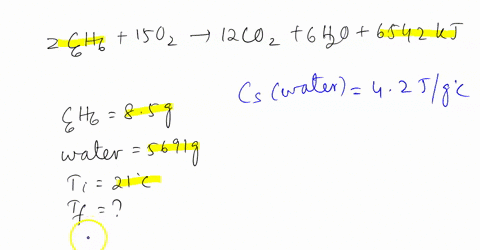 2 C6H6 + 15O2 → 12CO2 + 6H2O + 6542 kJ
Cs (water) = 4.2 J/g°C
C6H6 = 8.5g
water = 5691g
Ti = 21°C
Tf = ?